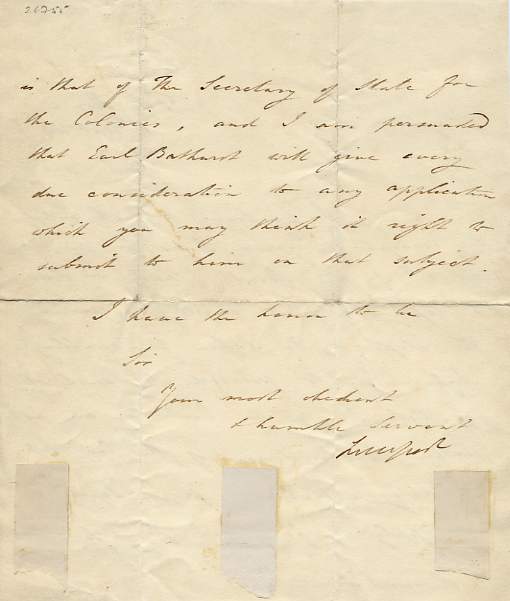 20755
is that of The Secretary of State for
the Colonies, and I am persuaded
that Earl Bathurst will give every
due consideration to any application
which you may think it right to
submit to him on that subject.
I have the honor to be
Sir
Your most obedient
& humble Servant
Liverpool